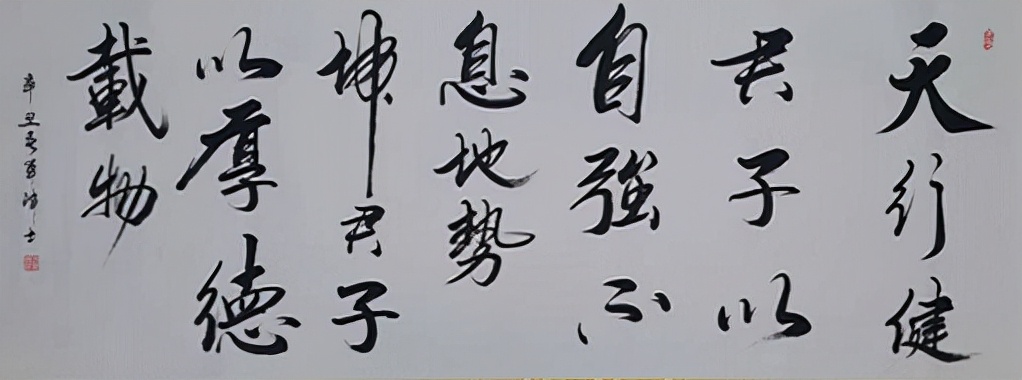 天行健
君子以
自強不
息地勢
坤君子
以厚德
載物
辛丑